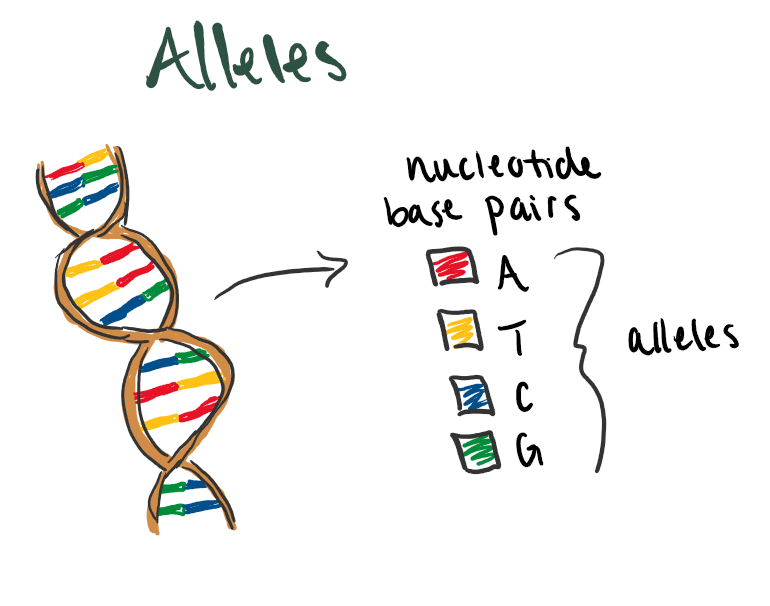 Alleles
nucleotide
base pairs
A
T
C
G
alleles